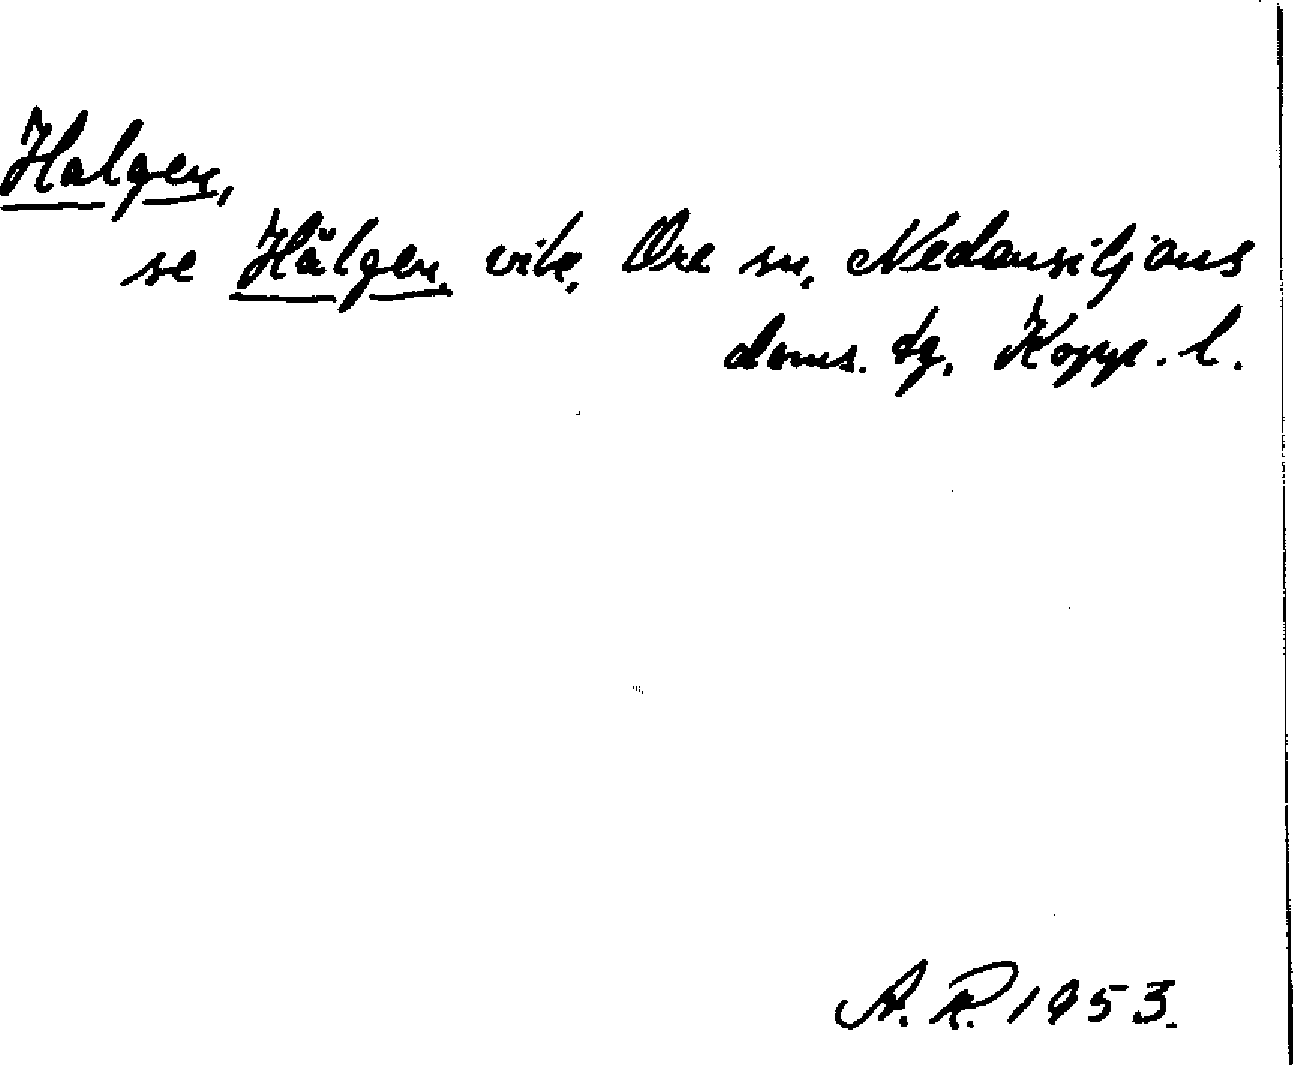 Halgen,
se Hälgen, vik, Ore sn, Nedansiljans
doms. tg, Kopp. l.
A. R. 1953.